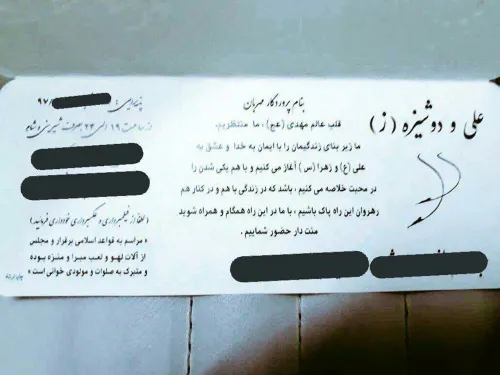 علی و دوشیزه (ز)
بنام پروردگار مهربان
قلب عالم مهدی (عج)، ما منتظریم.
ما زیر بنای زندگیمان را با ایمان به خدا و عشق به
علی (ع) و زهرا (س) آغاز می کنیم و با هم یکی شدن را
در محبت خلاصه می کنیم، باشد که در زندگی با هم و در کنار هم
رهروان این راه پاک باشیم، با ما در این راه همگام و همراه شوید
منت دار حضور شماییم.
پذیرایی: ۹۷/
از ساعت ۱۹ الی ۲۳ بصرف شیرینی و شام
(لطفا از فیلمبرداری و عکسبرداری خودداری فرمائید)
« مراسم به قواعد اسلامی برقرار و مجلس
از آلات لهو و لعب مبرا و منزه بوده
و متبرک به صلوات و مولودی خوانی است »